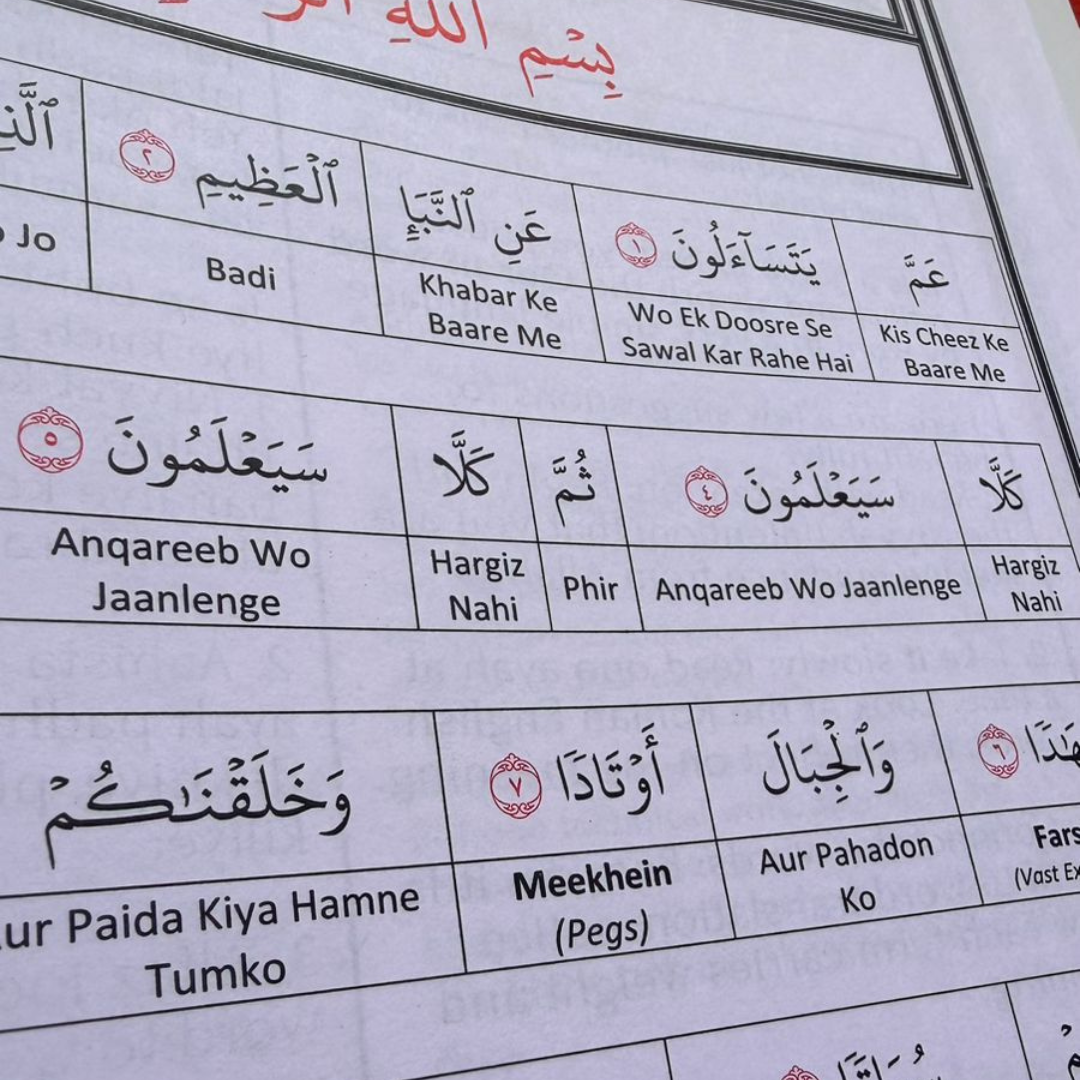 بِسْمِ اللهِ
عَمَّ يَتَسَآءَلُونَ ١ عَنِ ٱلنَّبَإِ ٱلْعَظِيمِ ٢
Kis Cheez Ke Baare Me
Wo Ek Doosre Se Sawal Kar Rahe Hai
Khabar Ke Baare Me
Badi
Jo
كَلَّا سَيَعْلَمُونَ ٤ ثُمَّ كَلَّا سَيَعْلَمُونَ ٥
Hargiz Nahi
Anqareeb Wo Jaanlenge
Phir
Hargiz Nahi
Anqareeb Wo Jaanlenge
٦ وَٱلْجِبَالَ أَوْتَادًا ٧ وَخَلَقْنَـٰكُمْ
Aur Pahadon Ko
Meekhein (Pegs)
Paida Kiya Hamne Tumko